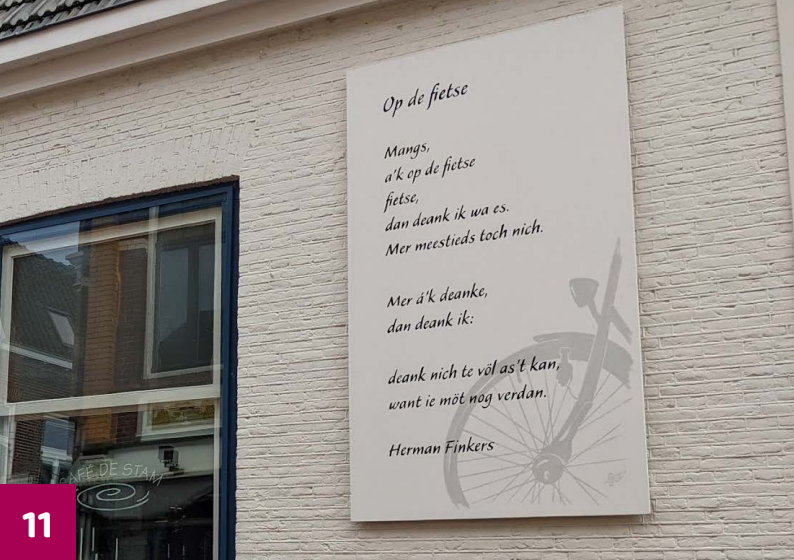 Op de fietse
Mangs,
a'k op de fietse
fietse,
dan deank ik wa es.
Mer meestieds toch nich.
Mer á'k deanke,
dan deank ik:
deank nich te völ as't kan,
want ie möt nog verdan.
Herman Finkers
CAFE DE STAM
11